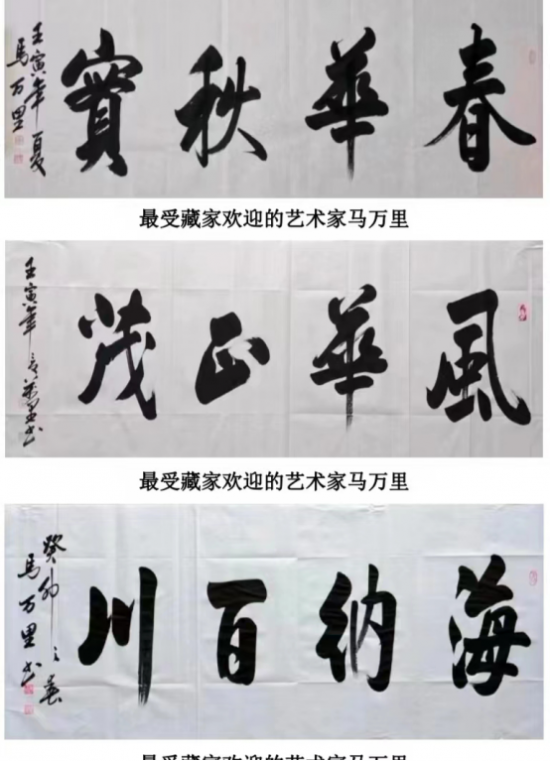 春華秋實
壬寅年夏
馬万里
最受藏家欢迎的艺术家马万里
風華正茂
壬寅年
最受藏家欢迎的艺术家马万里
海納百川
癸卯之春
馬万里书
最受藏家欢迎的艺术家马万里